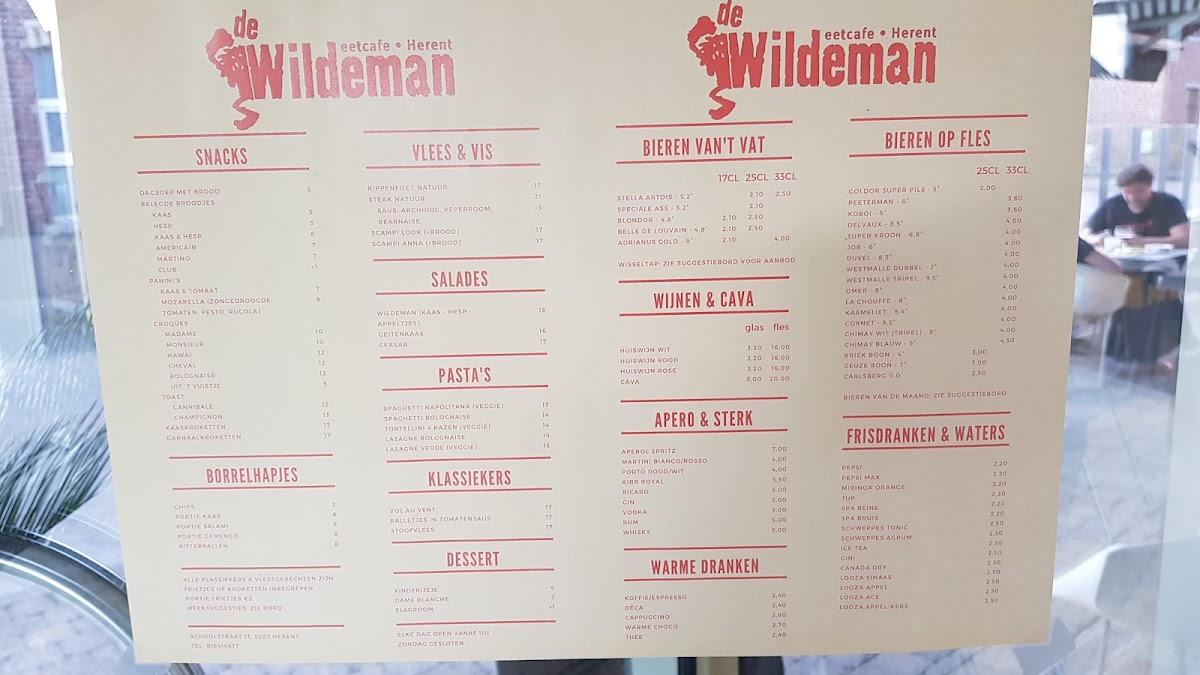 de
eetcafe • Herent
Wildeman
SNACKS
DAGSOEP MET BROOD 5
BELEGDE BROODJES
KAAS 5
HESP 5
KAAS & HESP 6
AMERICAIN 7
MARTINO 7
CLUB +1
PANINI'S
KAAS & TOMAAT 7
MOZARELLA (ZONGEDROOGDE 8
TOMATEN, PESTO, RUCOLA)
CROQUES
MADAME 10
MONSIEUR 10
HAWAI 12
CHEVAL 12
BOLOGNAISE 12
UIT 'T VUISTJE 5
TOAST
CANNIBALE 12
CHAMPIGNON 13
KAASKROKETTEN 13
GARNAALKROKETTEN 17
BORRELHAPJES
CHIPS 2
PORTIE KAAS 6
PORTIE SALAMI 6
PORTIE GEMENGD 8
BITTERBALLEN 8
ALLE KLASSIEKERS & VLEESGERECHTEN ZIJN
FRIETJES OF KROKETTEN INBEGREPEN
PORTIE FRIETJES €2
WEEKSUGGESTIES: ZIE BORD
SCHOOLSTRAAT 13, 3020 HERENT
TEL: 016416677
VLEES & VIS
KIPPENFILET NATUUR 17
STEAK NATUUR 21
SAUS: ARCHIDUC, PEPERROOM, +3
BEARNAISE
SCAMPI LOOK (+BROOD) 17
SCAMPI ANNA (+BROOD) 17
SALADES
WILDEMAN (KAAS - HESP - 15
APPELTJES)
GEITENKAAS 16
CEASAR 17
PASTA'S
SPAGHETTI NAPOLITANA (VEGGIE) 13
SPAGHETTI BOLOGNAISE 14
TORTELLINI 4 KAZEN (VEGGIE) 14
LASAGNE BOLOGNAISE 15
LASAGNE VERDE (VEGGIE) 15
KLASSIEKERS
VOL AU VENT 17
BALLETJES IN TOMATENSAUS 17
STOOFVLEES 17
DESSERT
KINDERIJSJE 4
DAME BLANCHE 7
SLAGROOM +1
ELKE DAG OPEN VANAF 11U
ZONDAG GESLOTEN
de
eetcafe • Herent
Wildeman
BIEREN VAN'T VAT
17CL 25CL 33CL
STELLA ARTOIS - 5,2° 2,10 2,50
SPECIALE ASS - 5,2° 2,10
BLONDOR - 4,8° 2,10 2,50
BELLE DE LOUVAIN - 4,8° 2,10 2,50
ADRIANUS GOLD - 8° 2,10 4,00
WISSELTAP: ZIE SUGGESTIEBORD VOOR AANBOD
WIJNEN & CAVA
glas fles
HUISWIJN WIT 3,20 16,00
HUISWIJN ROOD 3,20 16,00
HUISWIJN ROSE 3,20 16,00
CAVA 5,00 20,00
APERO & STERK
APEROL SPRITZ 7,00
MARTINI BIANCO/ROSSO 4,00
PORTO ROOD/WIT 4,00
KIRR ROYAL 5,50
RICARD 5,00
GIN 5,00
VODKA 5,00
RUM 5,00
WHISKY 5,00
WARME DRANKEN
KOFFIE/ESPRESSO 2,40
DÉCA 2,40
CAPPUCCINO 2,80
WARME CHOCO 2,70
THEE 2,40
BIEREN OP FLES
25CL 33CL
GOLDOR SUPER PILS - 5° 2,00
PEETERMAN - 6° 3,60
KOBOI - 5° 3,60
DELVAUX - 8,5° 4,00
SUPER KROON - 6,8° 4,00
JOB - 6° 4,00
DUVEL - 8,5° 4,00
WESTMALLE DUBBEL - 7° 4,00
WESTMALLE TRIPEL - 9,5° 4,00
OMER - 8° 4,00
LA CHOUFFE - 8° 4,00
KARMELIET - 8,4° 4,00
CORNET - 8,5° 4,00
CHIMAY WIT (TRIPEL) - 8° 4,00
CHIMAY BLAUW - 9° 4,50
KRIEK BOON - 4° 3,00
GEUZE BOON - 7° 3,00
CARLSBERG 0,0 2,50
BIEREN VAN DE MAAND: ZIE SUGGESTIEBORD
FRISDRANKEN & WATERS
PEPSI 2,20
PEPSI MAX 2,20
MIRINDA ORANGE 2,20
7UP 2,20
SPA REINE 2,20
SPA BRUIS 2,20
SCHWEPPES TONIC 2,50
SCHWEPPES AGRUM 2,50
ICE TEA 2,50
GINI 2,50
CANADA DRY 2,50
LOOZA SINAAS 2,50
LOOZA APPEL 2,50
LOOZA ACE 2,50
LOOZA APPEL-KERS 2,50